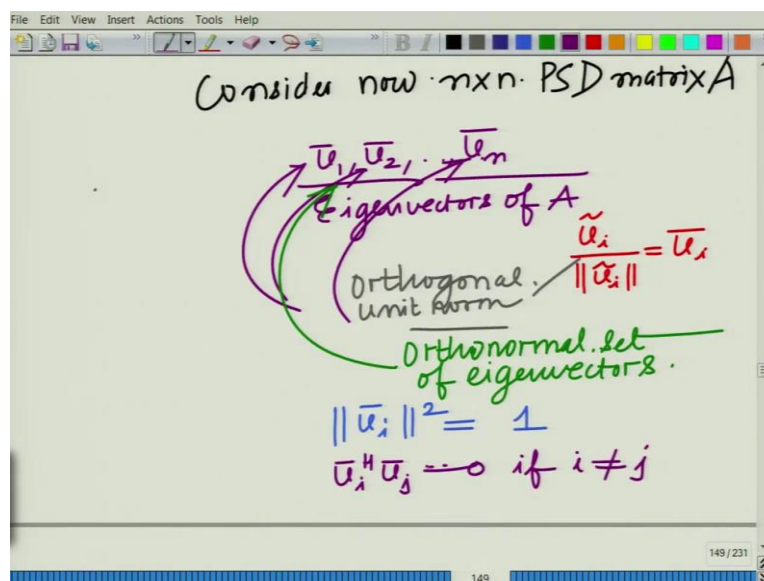 File Edit View Insert Actions Tools Help
Consider now n×n PSD matrix A
ū₁, ū₂, ... ūₙ
Eigenvectors of A
ũᵢ / ||ũᵢ|| = ūᵢ
Orthogonal.
unit norm
Orthonormal set
of eigenvectors.
||ūᵢ||² = 1
ūᵢᴴ ūⱼ = 0 if i ≠ j
149/231
149